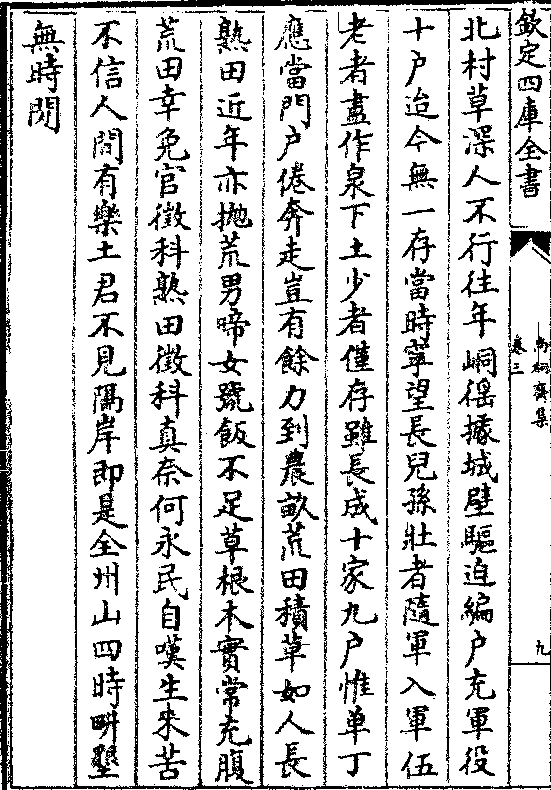 欽定四庫全書
卷三
九
北村草深人不行往年峒徭據城壁驅迫編户充軍役
十户迨今無一存當時寧望長兒孫壯者隨軍入軍伍
老者盡作泉下土少者僅存雖長成十家九户惟单丁
應當門户倦奔走豈有餘力到農畝荒田積草如人長
熟田近年亦抛荒男啼女號飯不足草根木實常充腹
荒田幸免官徵科熟田徵科真奈何永民自嘆生来苦
不信人間有樂土君不見隔岸即是全州山四時畊墾
無時閒